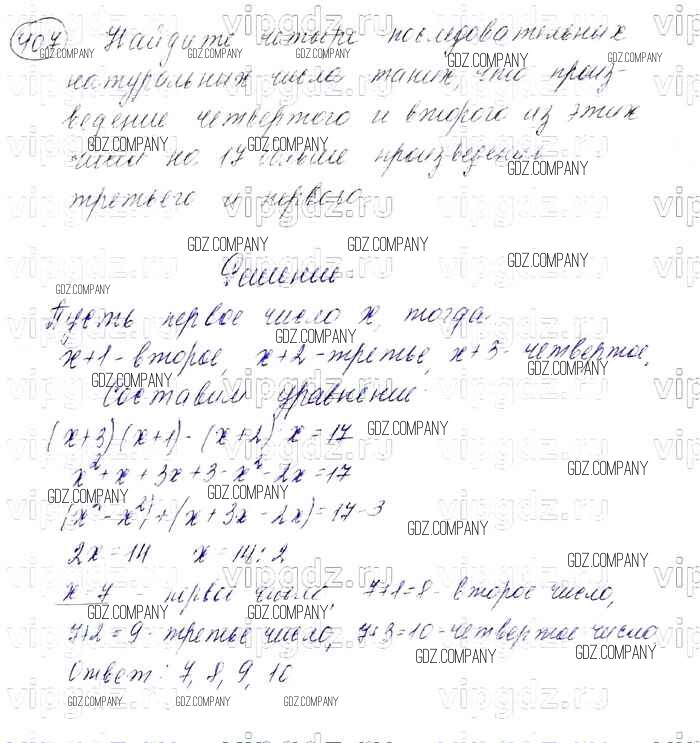 407 Найдите четыре последовательных
натуральных числа таких, что произ-
ведение четвертого и второго из этих
чисел на 17 больше произведения
третьего и первого.
Решение.
Пусть первое число x, тогда
x+1 - второе, x+2 - третье, x+3 - четвертое.
Составим уравнение:
(x+3)(x+1) - (x+2) x = 17
x²+x+3x+3-x²-2x=17
(x²-x²)+(x+3x-2x)=17-3
2x=14 x=14:2
x=7 - первое число, 7+1=8 - второе число,
7+2=9 - третье число, 7+3=10 - четвертое число
Ответ: 7, 8, 9, 10
GDZ.COMPANY
vipgdz.ru